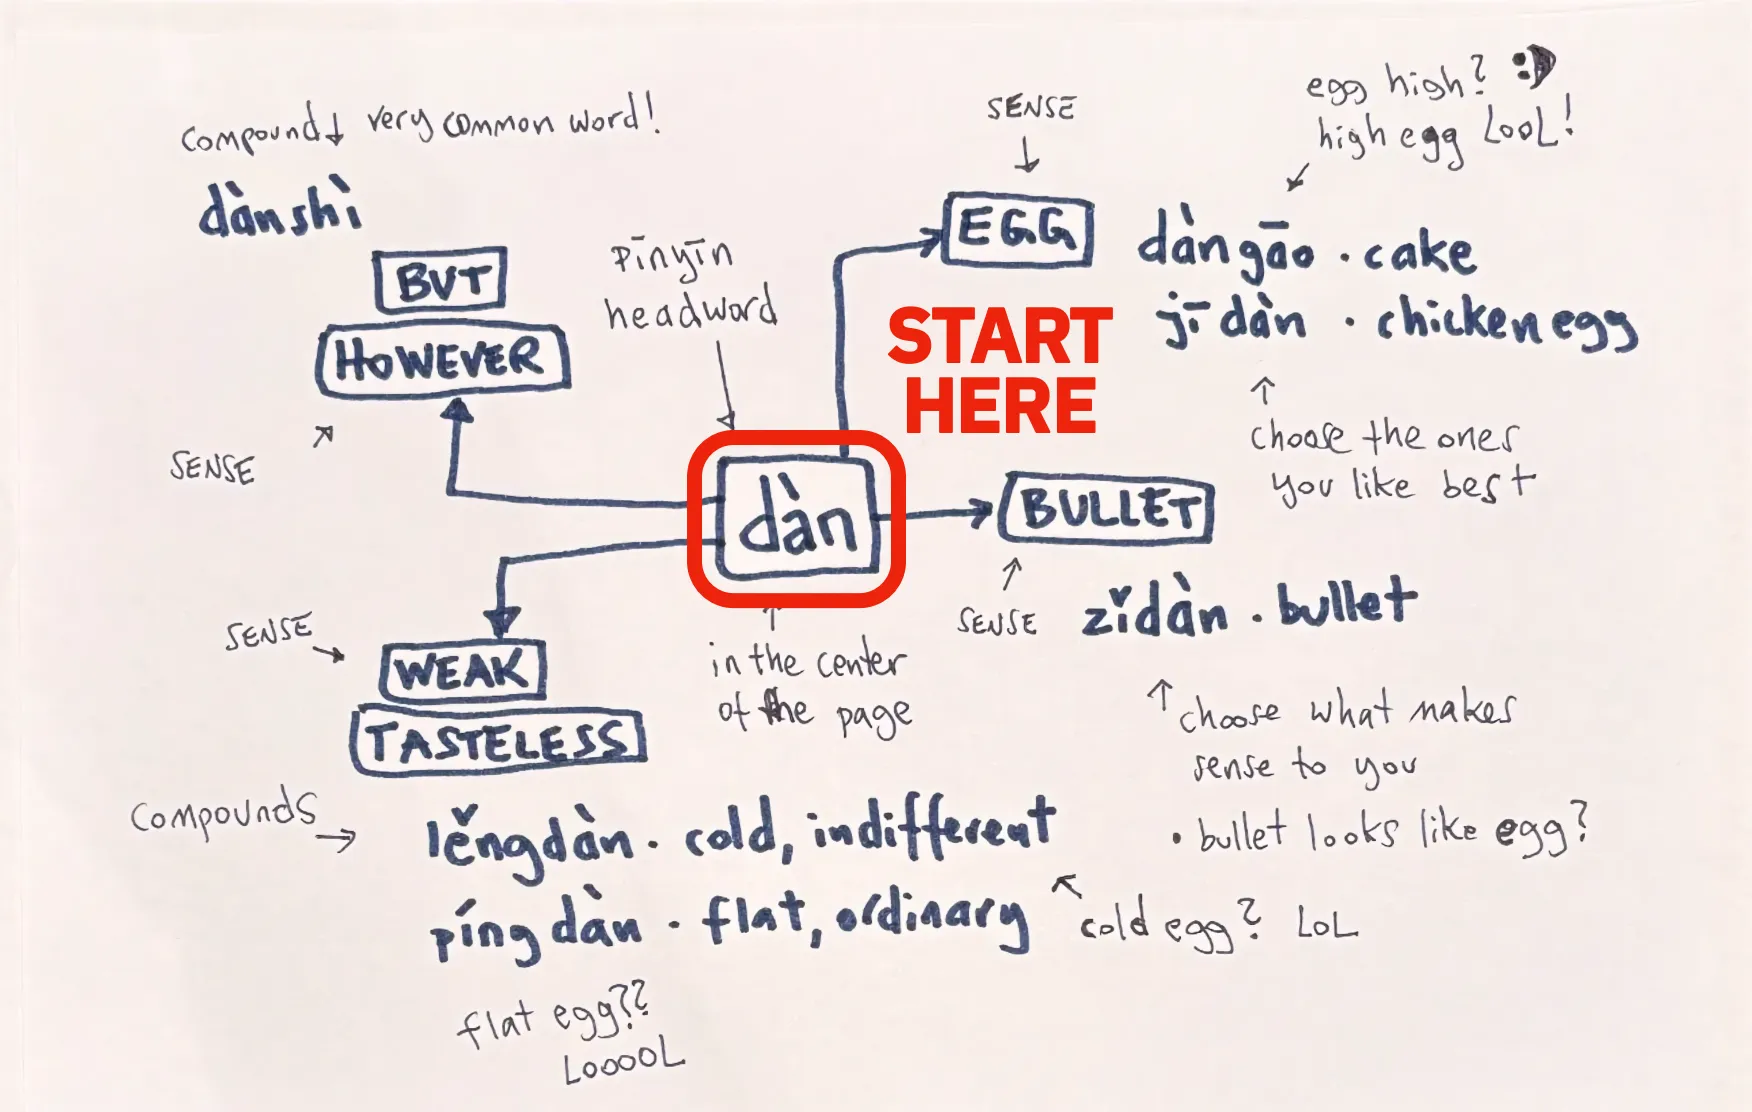 compound↓ very common word!
dànshì
BUT
HOWEVER
SENSE
pīnyīn
headword
SENSE
EGG
egg high? :D
high egg LooL!
dàngāo · cake
jīdàn · chicken egg
START
HERE
choose the ones
you like best
dàn
BULLET
SENSE
zǐdàn · bullet
in the center
of the page
choose what makes
sense to you
• bullet looks like egg?
SENSE
WEAK
TASTELESS
compounds
lěngdàn · cold, indifferent
píngdàn · flat, ordinary
cold egg? LoL
flat egg??
LooooL